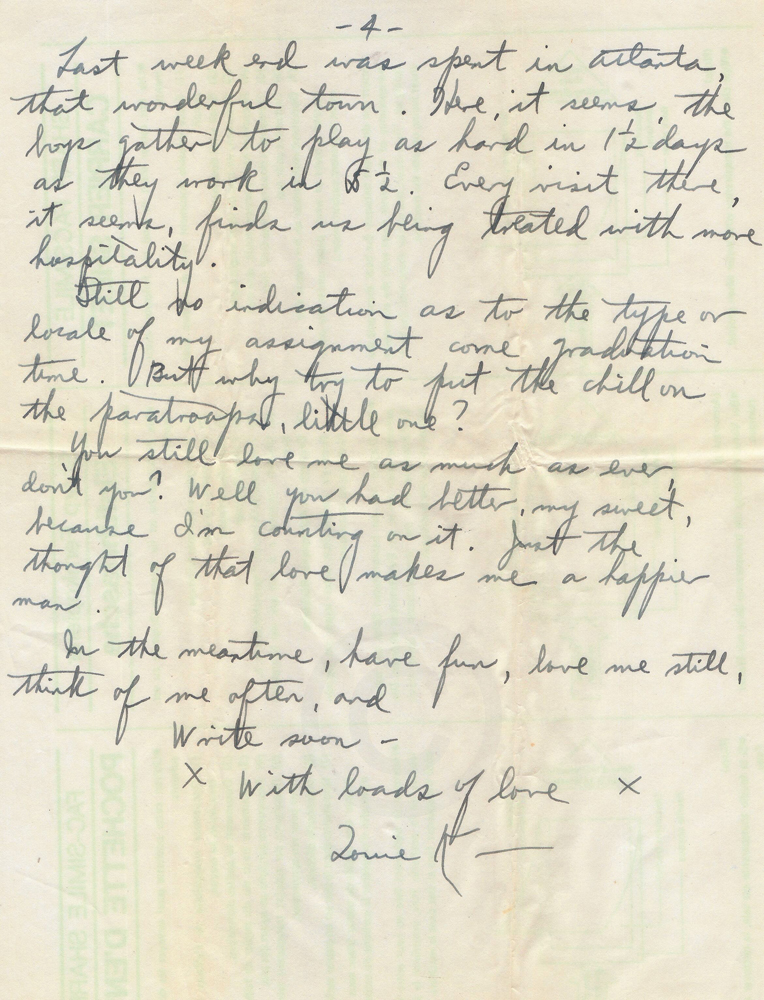 -4-
Last week end was spent in Atlanta,
that wonderful town. Here, it seems, the
boys gather to play as hard in 1½ days
as they work in 5½. Every visit there,
it seems, finds us being treated with more
hospitality.
Still no indication as to the type or
locale of my assignment come graduation
time. But why try to put the chill on
the paratroops, little one?
You still love me as much as ever,
don't you? Well you had better, my sweet,
because I'm counting on it. Just the
thought of that love makes me a happier
man.
In the meantime, have fun, love me still,
think of me often, and
Write soon -
X With loads of love X
Louie K—
POCHETTE D'EN
FAC-SIMILE SHAR